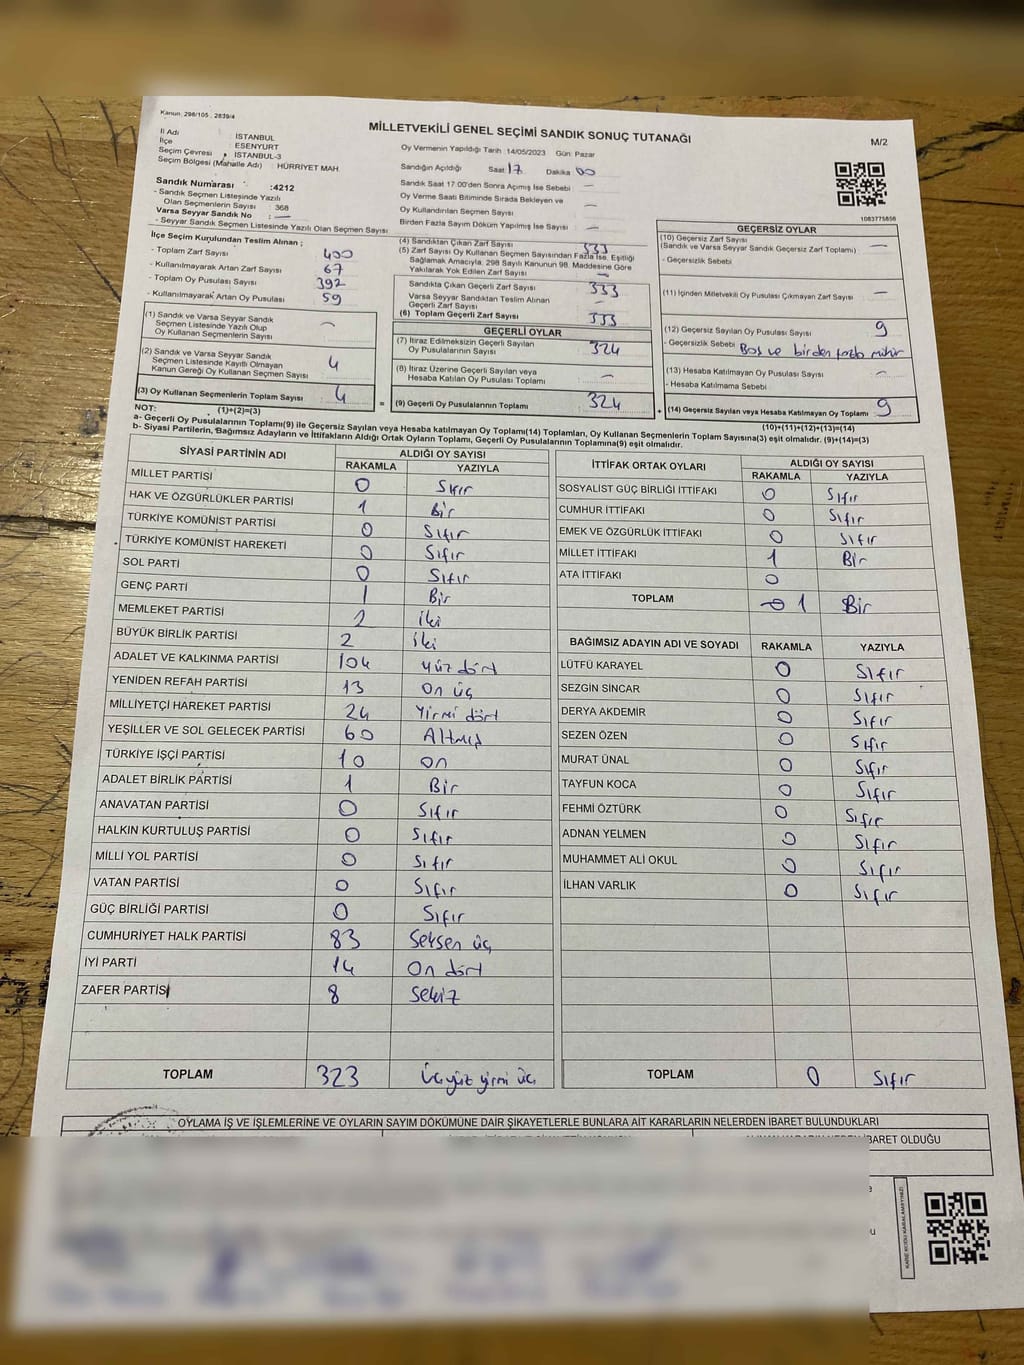 Kanun: 298/105 , 2839/4
MİLLETVEKİLİ GENEL SEÇİMİ SANDIK SONUÇ TUTANAĞI
M/2
İl Adı : İSTANBUL
İlçe : ESENYURT
Seçim Çevresi : İSTANBUL-3
Seçim Bölgesi (Mahalle Adı) : HÜRRİYET MAH.
Oy Vermenin Yapıldığı Tarih :14/05/2023 Gün: Pazar
Sandığın Açıldığı Saat 17 Dakika 00
Sandık Saat 17:00'den Sonra Açımış İse Sebebi : —
Oy Verme Saati Bitiminde Sırada Bekleyen ve
Oy Kullandırılan Seçmen Sayısı —
Birden Fazla Sayım Döküm Yapılmış İse Sayısı : —
1083775856
Sandık Numarası :4212
- Sandık Seçmen Listesinde Yazılı
Olan Seçmenlerin Sayısı : 368
Varsa Seyyar Sandık No : —
- Seyyar Sandık Seçmen Listesinde Yazılı Olan Seçmen Sayısı
İlçe Seçim Kurulundan Teslim Alınan ;
- Toplam Zarf Sayısı 400
- Kullanılmayarak Artan Zarf Sayısı 67
- Toplam Oy Pusulası Sayısı 392
- Kullanılmayarak Artan Oy Pusulası 59
(1) Sandık ve Varsa Seyyar Sandık
Seçmen Listesinde Yazılı Olup
Oy Kullanan Seçmenlerin Sayısı —
(2) Sandık ve Varsa Seyyar Sandık
Seçmen Listesinde Kayıtlı Olmayan
Kanun Gereği Oy Kullanan Seçmen Sayısı 4
(3) Oy Kullanan Seçmenlerin Toplam Sayısı 4
(1)+(2)=(3)
(4) Sandıktan Çıkan Zarf Sayısı 333
(5) Zarf Sayısı Oy Kullanan Seçmen Sayısından Fazla İse, Eşitliği
Sağlamak Amacıyla, 298 Sayılı Kanunun 98. Maddesine Göre
Yakılarak Yok Edilen Zarf Sayısı —
Sandıkta Çıkan Geçerli Zarf Sayısı 333
Varsa Seyyar Sandıktan Teslim Alınan
Geçerli Zarf Sayısı —
(6) Toplam Geçerli Zarf Sayısı 333
GEÇERLİ OYLAR
(7) İtiraz Edilmeksizin Geçerli Sayılan
Oy Pusulalarının Sayısı 324
(8) İtiraz Üzerine Geçerli Sayılan veya
Hesaba Katılan Oy Pusulası Toplamı —
= (9) Geçerli Oy Pusulalarının Toplamı 324
GEÇERSİZ OYLAR
(10) Geçersiz Zarf Sayısı
(Sandık ve Varsa Seyyar Sandık Geçersiz Zarf Toplamı) —
- Geçersizlik Sebebi
(11) İçinden Milletvekili Oy Pusulası Çıkmayan Zarf Sayısı —
(12) Geçersiz Sayılan Oy Pusulası Sayısı 9
- Geçersizlik Sebebi Boş ve birden fazla mühür
(13) Hesaba Katılmayan Oy Pusulası Sayısı —
- Hesaba Katılmama Sebebi
+ (14) Geçersiz Sayılan veya Hesaba Katılmayan Oy Toplamı 9
(10)+(11)+(12)+(13)=(14)
NOT:
a- Geçerli Oy Pusulası Toplamı(9) ile Geçersiz Sayılan veya Hesaba katılmayan Oy Toplamı(14) Toplamları, Oy Kullanan Seçmenlerin Toplam Sayısına(3) eşit olmalıdır. (9)+(14)=(3)
b- Siyasi Partilerin, Bağımsız Adayların ve İttifakların Aldığı Ortak Oyların Toplamı, Geçerli Oy Pusulalarının Toplamına(9) eşit olmalıdır.
SİYASİ PARTİNİN ADI ALDIĞI OY SAYISI
RAKAMLA YAZIYLA
MİLLET PARTİSİ 0 Sıfır
HAK VE ÖZGÜRLÜKLER PARTİSİ 1 Bir
TÜRKİYE KOMÜNİST PARTİSİ 0 Sıfır
TÜRKİYE KOMÜNİST HAREKETİ 0 Sıfır
SOL PARTİ 0 Sıfır
GENÇ PARTİ 1 Bir
MEMLEKET PARTİSİ 2 iki
BÜYÜK BİRLİK PARTİSİ 2 iki
ADALET VE KALKINMA PARTİSİ 104 yüz dört
YENİDEN REFAH PARTİSİ 13 On üç
MİLLİYETÇİ HAREKET PARTİSİ 24 Yirmi dört
YEŞİLLER VE SOL GELECEK PARTİSİ 60 Altmış
TÜRKİYE İŞÇİ PARTİSİ 10 on
ADALET BİRLİK PARTİSİ 1 Bir
ANAVATAN PARTİSİ 0 Sıfır
HALKIN KURTULUŞ PARTİSİ 0 Sıfır
MİLLİ YOL PARTİSİ 0 Sıfır
VATAN PARTİSİ 0 Sıfır
GÜÇ BİRLİĞİ PARTİSİ 0 Sıfır
CUMHURİYET HALK PARTİSİ 83 Seksen üç
İYİ PARTİ 14 On dört
ZAFER PARTİSİ 8 Sekiz
TOPLAM 323 üçyüz yirmi üç
İTTİFAK ORTAK OYLARI ALDIĞI OY SAYISI
RAKAMLA YAZIYLA
SOSYALİST GÜÇ BİRLİĞİ İTTİFAKI 0 Sıfır
CUMHUR İTTİFAKI 0 Sıfır
EMEK VE ÖZGÜRLÜK İTTİFAKI 0 Sıfır
MİLLET İTTİFAKI 1 Bir
ATA İTTİFAKI 0
TOPLAM 0 1 Bir
BAĞIMSIZ ADAYIN ADI VE SOYADI RAKAMLA YAZIYLA
LÜTFÜ KARAYEL 0 Sıfır
SEZGİN SİNCAR 0 Sıfır
DERYA AKDEMİR 0 Sıfır
SEZEN ÖZEN 0 Sıfır
MURAT ÜNAL 0 Sıfır
TAYFUN KOCA 0 Sıfır
FEHMİ ÖZTÜRK 0 Sıfır
ADNAN YELMEN 0 Sıfır
MUHAMMET ALİ OKUL 0 Sıfır
İLHAN VARLIK 0 Sıfır
TOPLAM 0 Sıfır
OYLAMA İŞ VE İŞLEMLERİNE VE OYLARIN SAYIM DÖKÜMÜNE DAİR ŞİKAYETLERLE BUNLARA AİT KARARLARIN NELERDEN İBARET BULUNDUKLARI
İBARET OLDUĞU